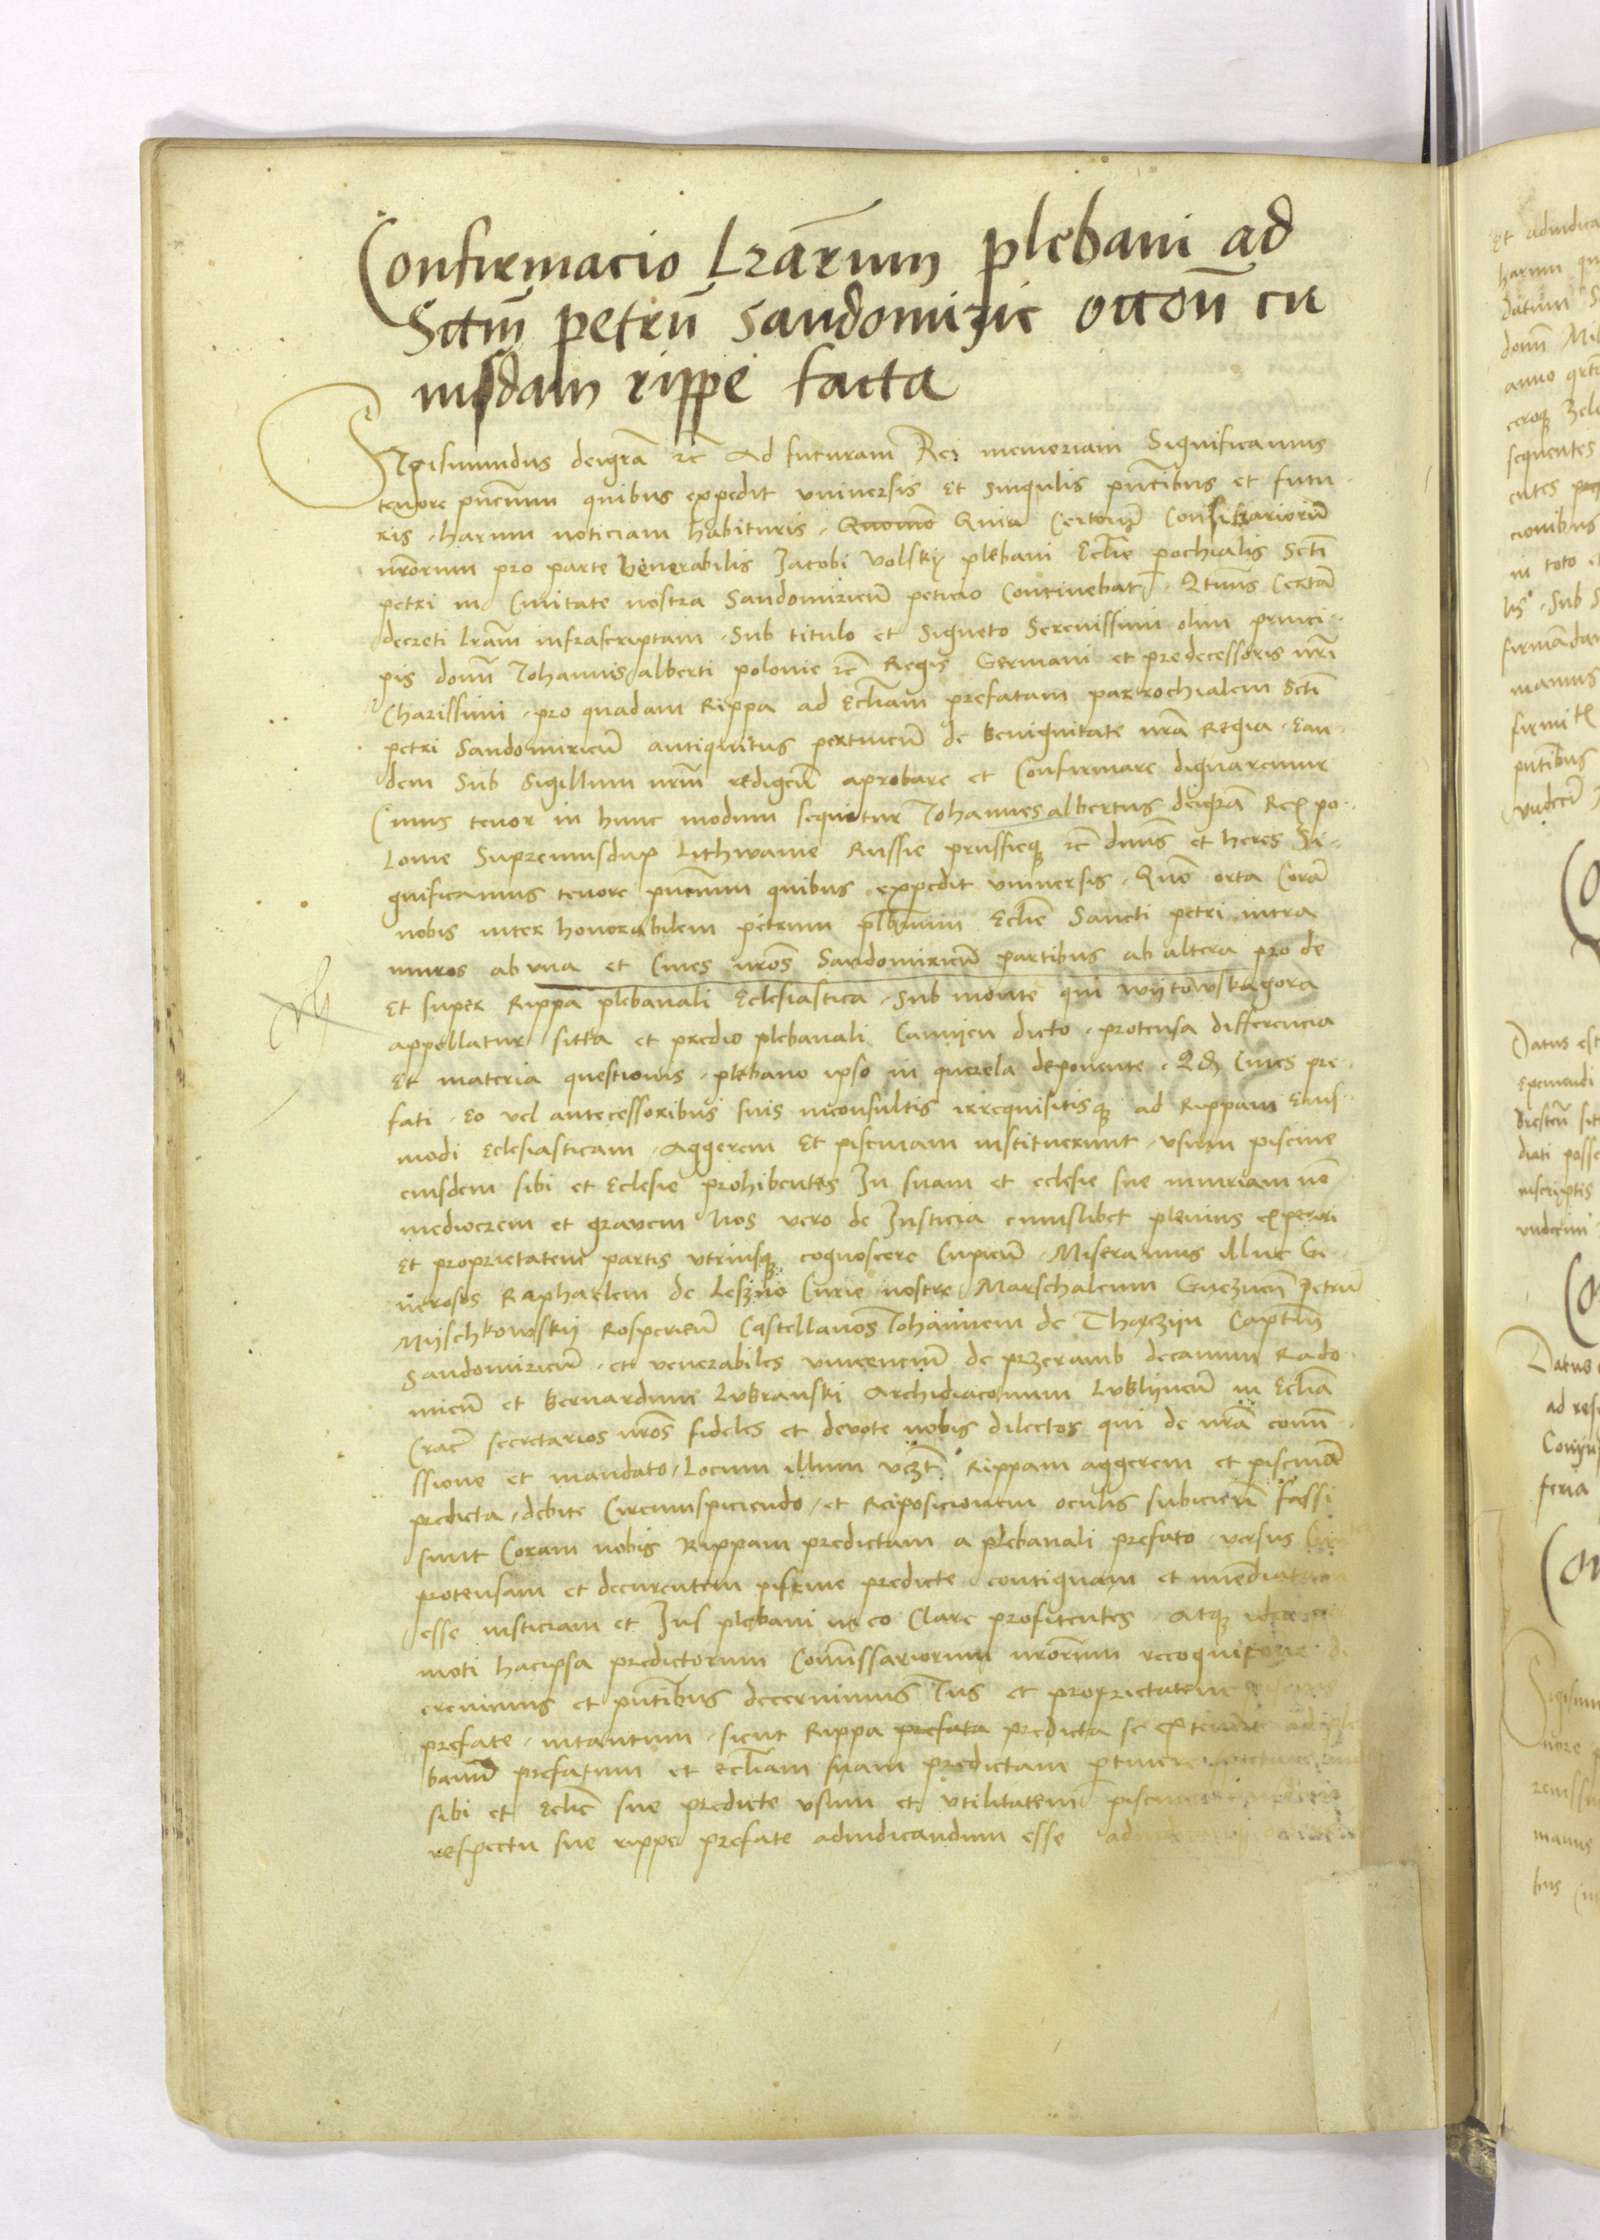 Confirmacio Lrarum plebani ad
Sctm petru Sandomirie occon cu
iusdam rippe facta
Sigismundus deigra rc Ad futuram Rei memoriam Significamus
tenore pntium quibus expedit vniversis Et singulis pntibus et futu
ris harum noticiam habituris Quomo Quia Certoru Consiliarioru
nrorum pro parte venerabilis Jacobi Volskij plebani Eclie pochialis Scti
petri in Civitate nostra Sandomirien peticio Continebat Qtnus Certa
decreti lram infrascriptam Sub titulo et Signeto Serenissimi olim princi
pis domi Johannis alberti polonie rc Regis Germani et predecessoris nri
Charissimi pro quadam Rippa ad Ecliam prefatam parrochialem Scti
petri Sandomirien antiquitus pertinen de benignitate nra Regia Ean
dem Sub Sigillum nrum redigen aprobare et Confirmare dignaremur
Cuius tenor in hunc modum sequitur Johannes albertus deigra Rex po
lonie Supremusdux Lithwanie Russie prussieq rc dnus et heres Si
gnificamus tenore pntium quibus expedit vniversis Quo orta Cora
nobis inter honorabilem petrum plbanum Eclie Sancti petri intra
muros ab vna et Cives nros Sandomirien partibus ab altera pro de
Et super Rippa plebanali Eclesiastica Sub monte qui wijtowskagora
appellatur sitta et predio plebanali Camijen dicto protensa differencia
Et materia questionis plebano ipso in querela deponente Qd Cives pre
fati Eo vel antecessoribus suis inconsultis irrequisitisq ad Rippam Eius
modi Eclesiasticam Aggerem Et piscinam instituerunt vsum piscine
eiusdem sibi et Eclesie prohibentes In suam et eclesie sue iniuriam no
mediocrem et gravem Nos vero de Iusticia cuiuslibet plenius experiri
Et proprietatem partis vtriusq cognoscere Cupien Miseramus illuc Ge
nerosos Raphaelem de Leszno Curie nostre Marschalcum Gneznen Petru
Mijschkowskij Rosperien Castellanos Johannem de Thaczijn Captm
Sandomirien et venerabiles vincencium de przeramb decanum Rado
mien et Bernardum Lubranski Archidiaconum Lublijnen in Eclia
Crac secretarios nros fideles et devote nobis dilectos qui de nra comi
ssione et mandato Locum illum vczt Rippam aggerem et piscina
predicta debite Circumspiciendo et Reiposicionem oculis subicien fassi
sunt Coram nobis Rippam predictam a plebanali prefato versus
protensam et decurentem piscine predicte contiguam et imediatam
esse iusticiam et Jus plebani in eo Clare profitentes Atq
moti hacipsa predictorum Comissariorum nrorum recognicione de
crevimus et pntibus decernimus Jus et proprietatem
prefate intantum sicut Rippa prefata predicta se extendit ad ple
banu prefatum et ecliam suam predictam ptinere
sibi et Eclie sue predicte vsum et vtilitatem piscine
respectu sue rippe prefate adiudicandum esse